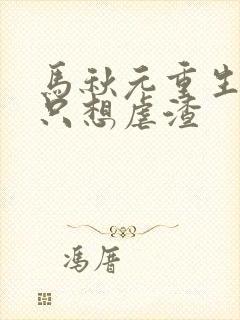 馬秋元重生
只想虐渣
冯厝